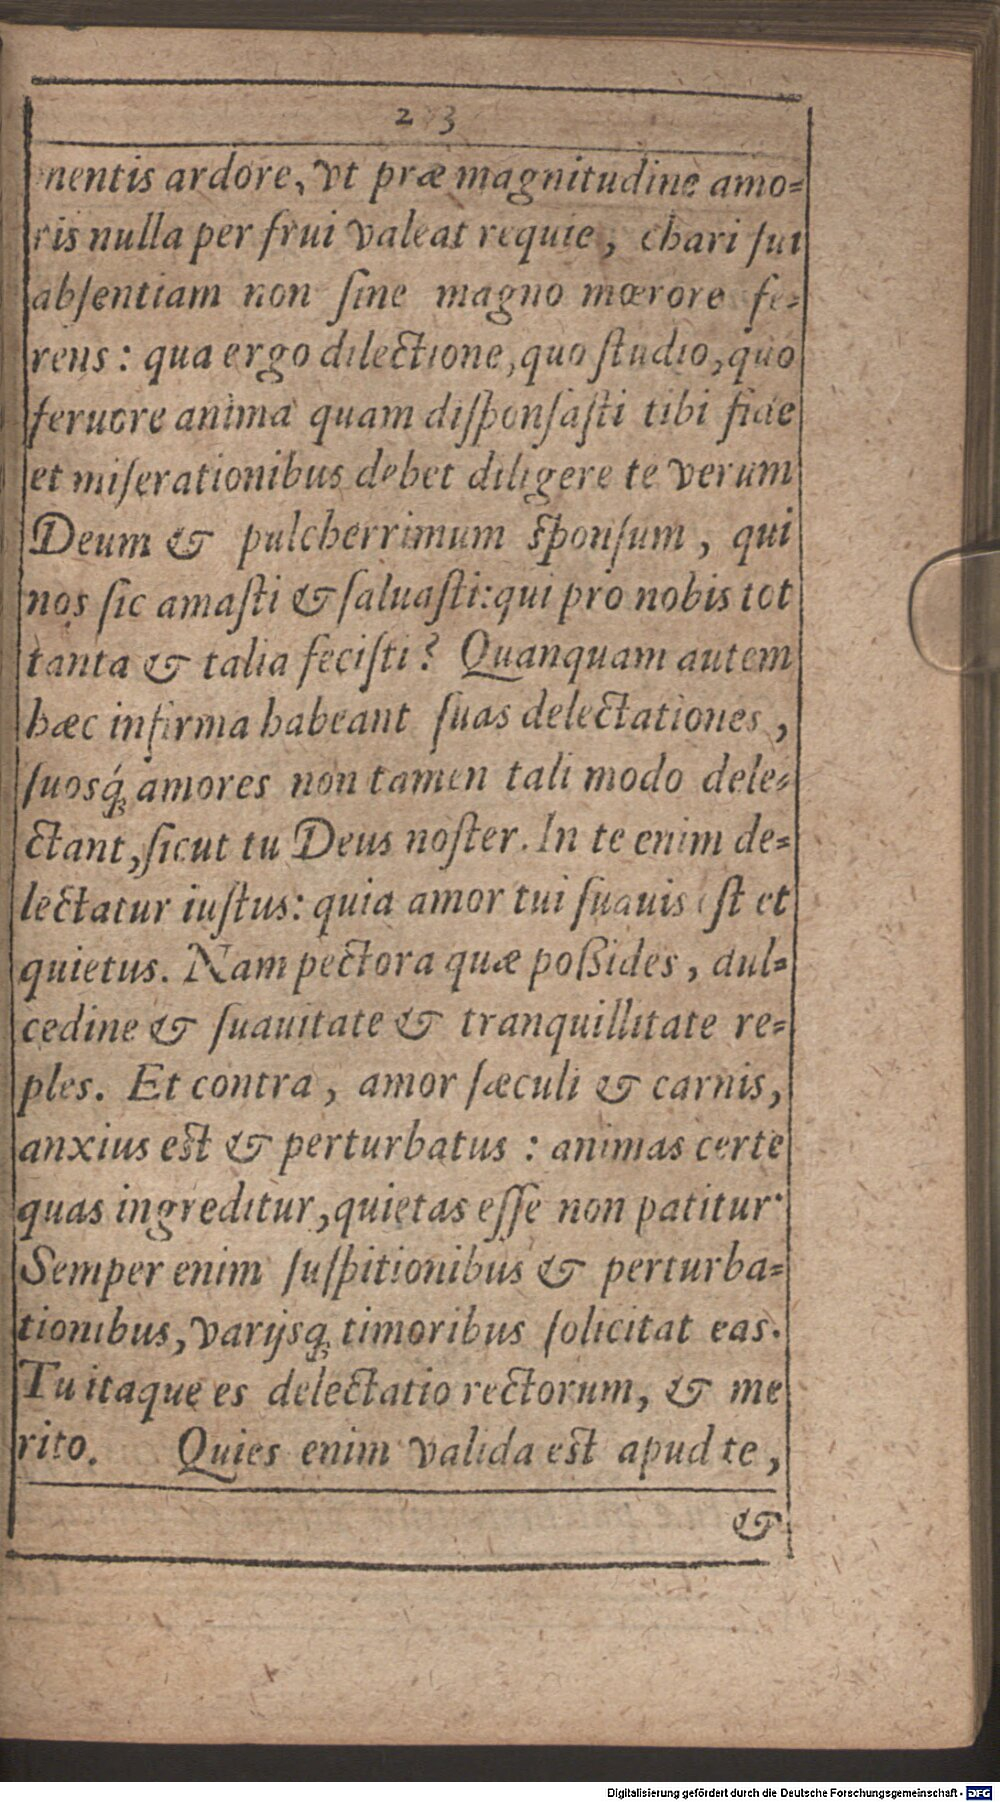 23
nentis ardore, vt præ magnitudine amo=
ris nulla per frui valeat requie, chari ſui
abſentiam non ſine magno mœrore fe=
rens: qua ergo dilectione, quo ſtudio, quo
feruore anima quam diſponſaſti tibi fide
et miſerationibus debet diligere te verum
Deum & pulcherrimum ſponſum, qui
nos ſic amaſti & ſaluaſti: qui pro nobis tot
tanta & talia feciſti? Quanquam autem
hæc infirma habeant ſuas delectationes,
ſuosq́ꝫ amores non tamen tali modo dele=
ctant, ſicut tu Deus noſter. In te enim de=
lectatur iuſtus: quia amor tui ſuauis eſt et
quietus. Nam pectora quæ poßides, dul=
cedine & ſuauitate & tranquillitate re=
ples. Et contra, amor ſæculi & carnis,
anxius eſt & perturbatus: animas certe
quas ingreditur, quietas eſſe non patitur.
Semper enim ſuſpitionibus & perturba=
tionibus, varijsqꝫ timoribus ſolicitat eas.
Tu itaque es delectatio rectorum, & me
rito. Quies enim valida eſt apud te,
&
Digitalisierung gefördert durch die Deutsche Forschungsgemeinschaft - DFG